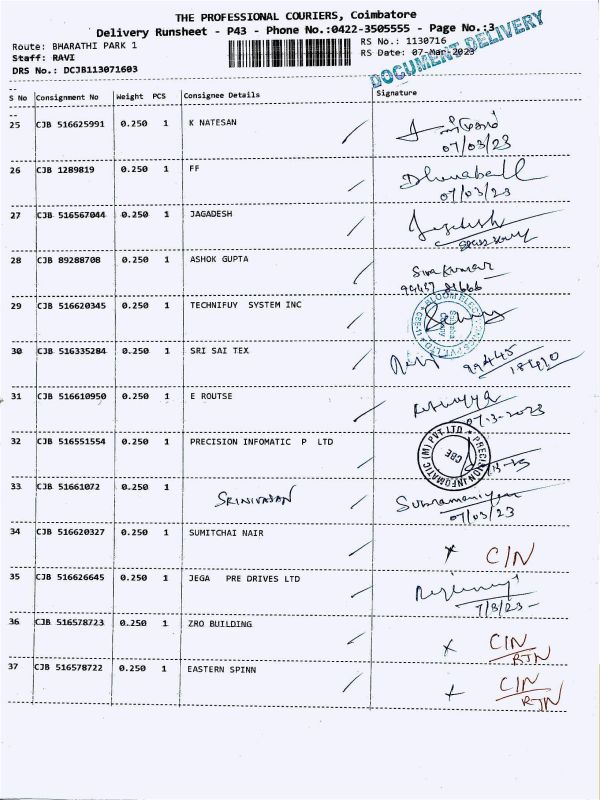 THE PROFESSIONAL COURIERS, Coimbatore
Delivery Runsheet - P43 - Phone No.:0422-3505555 - Page No.:3
Route: BHARATHI PARK 1
RS No.: 1130716
Staff: RAVI
RS Date: 07-Mar-2023
DRS No.: DCJB113071603
DOCUMENT DELIVERY
S No Consignment No Weight PCS Consignee Details Signature
25 CJB 516625991 0.250 1 K NATESAN
07/03/23
26 CJB 1289819 0.250 1 FF
07/03/23
27 CJB 516567044 0.250 1 JAGADESH Jagadesh
28 CJB 89288708 0.250 1 ASHOK GUPTA Siva Kumar
29 CJB 516620345 0.250 1 TECHNIFUY SYSTEM INC
30 CJB 516335284 0.250 1 SRI SAI TEX
99445
31 CJB 516610950 0.250 1 E ROUTSE
07-3-2023
32 CJB 516551554 0.250 1 PRECISION INFOMATIC P LTD
PRECISION INFOMATIC (M) PVT. LTD.
CBE
33 CJB 51661072 0.250 1 SRINIVASAN Subramaniyan
07/03/23
34 CJB 516620327 0.250 1 SUMITCHAI NAIR
x C/N
35 CJB 516626645 0.250 1 JEGA PRE DRIVES LTD
7/3/23
36 CJB 516578723 0.250 1 ZRO BUILDING
x C/N
RTN
37 CJB 516578722 0.250 1 EASTERN SPINN
x C/N
RTN